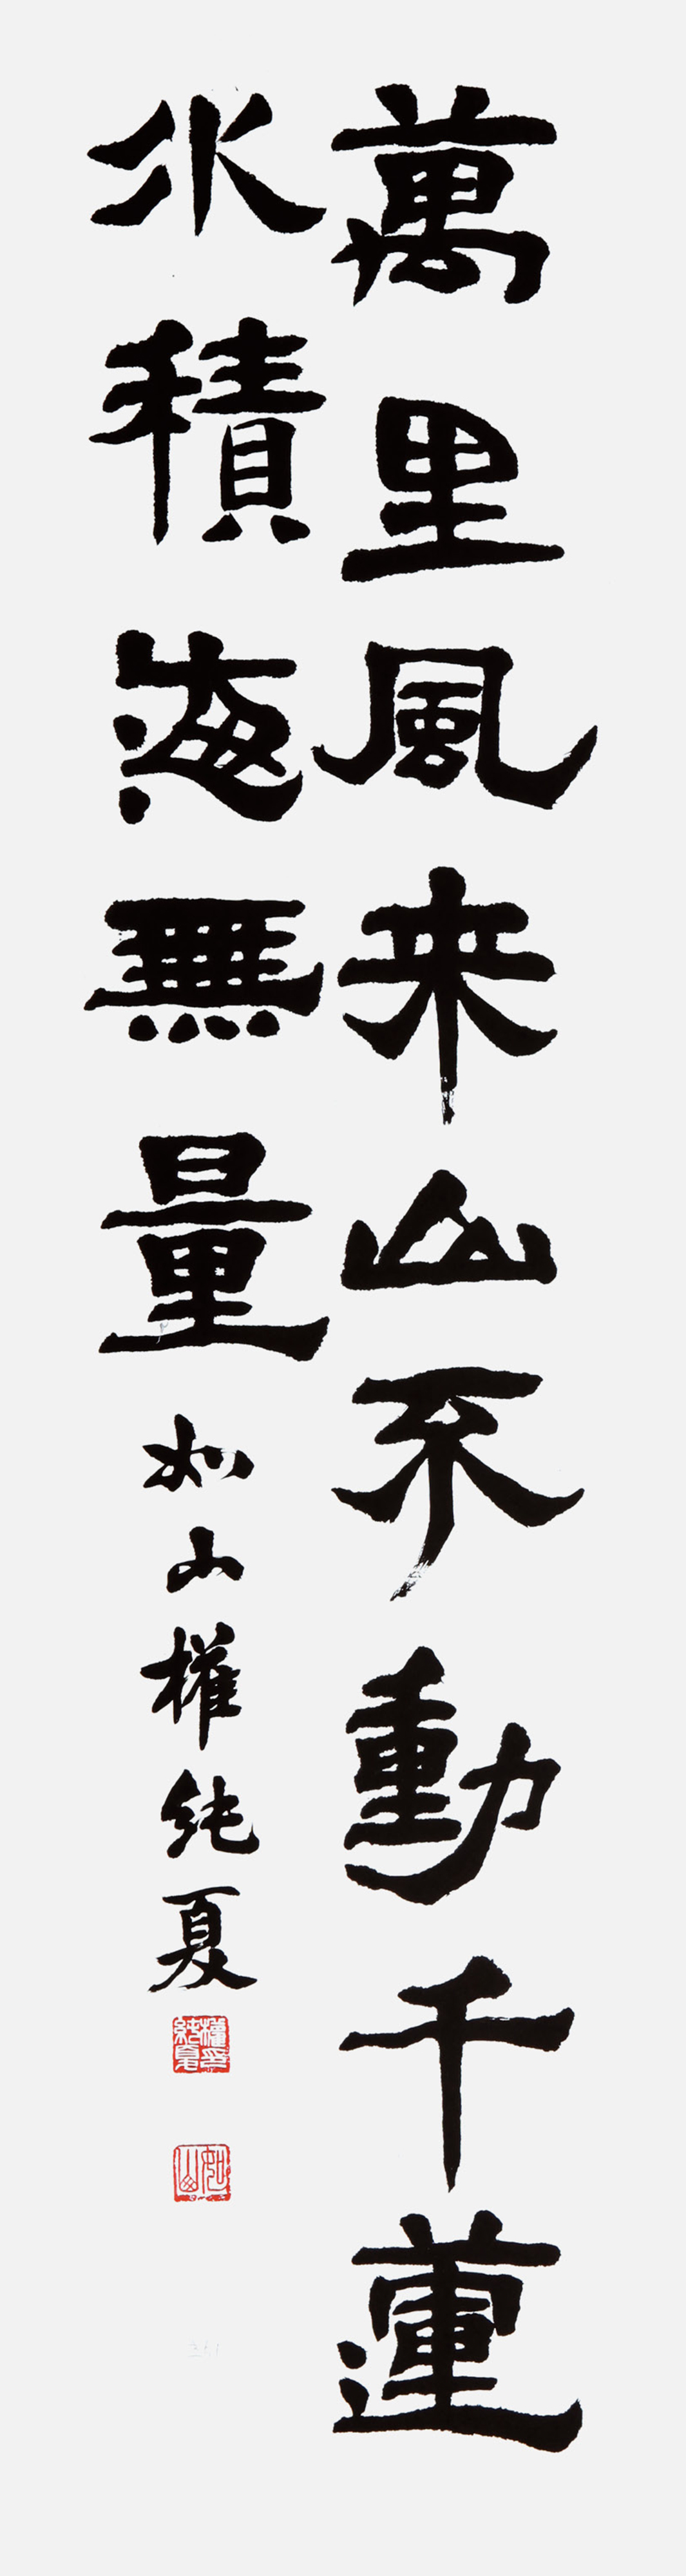 萬里風来山不動千蓮
水積海無量 如山權純夏
權印純夏
如山